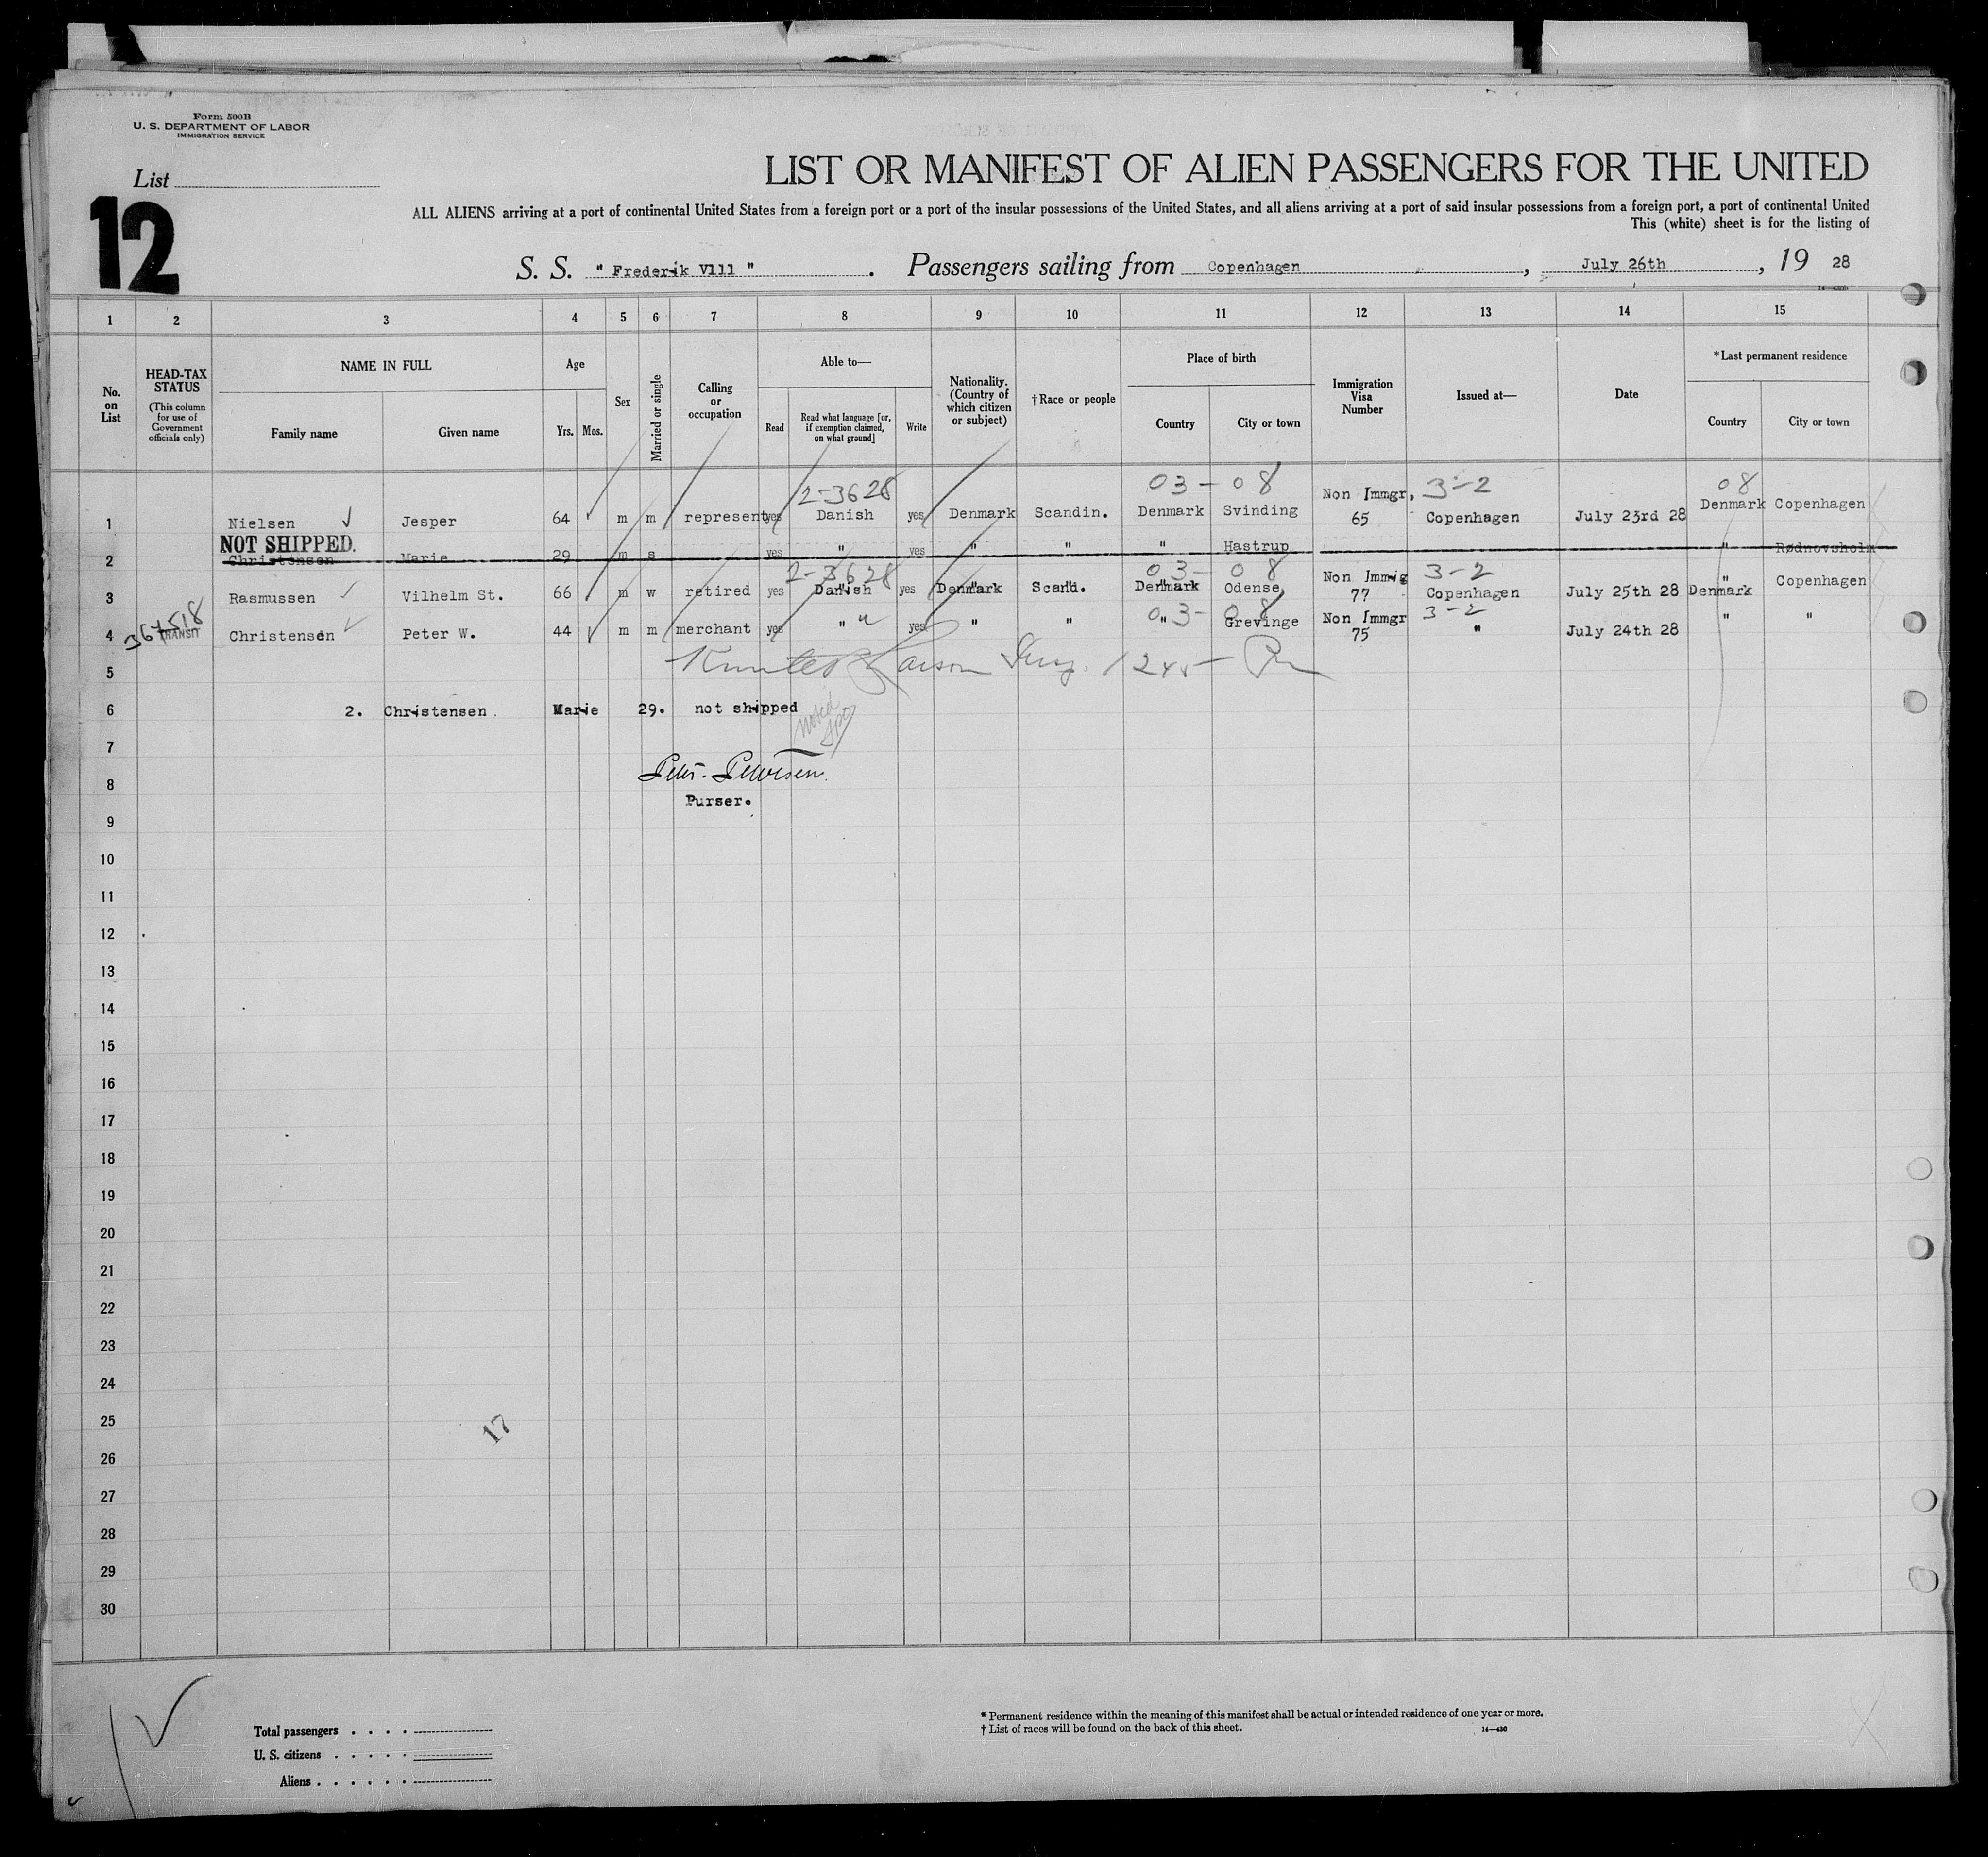 Form 500B
U. S. DEPARTMENT OF LABOR
IMMIGRATION SERVICE
List
12
LIST OR MANIFEST OF ALIEN PASSENGERS FOR THE UNITED
ALL ALIENS arriving at a port of continental United States from a foreign port or a port of the insular possessions of the United States, and all aliens arriving at a port of said insular possessions from a foreign port, a port of continental United
This (white) sheet is for the listing of
S. S. " Frederik Vlll " . Passengers sailing from Copenhagen , July 26th , 19 28
1 2 3 4 5 6 7 8 9 10 11 12 13 14 15
No. on List
HEAD-TAX STATUS
(This column for use of Government officials only)
NAME IN FULL
Family name Given name
Age
Yrs. Mos.
Sex
Married or single
Calling or occupation
Able to—
Read
Read what language [or, if exemption claimed, on what ground]
Write
Nationality. (Country of which citizen or subject)
†Race or people
Place of birth
Country City or town
Immigration Visa Number
Issued at—
Date
*Last permanent residence
Country City or town
2-3628 03 - 08 3-2 08
1 Nielsen Jesper 64 m m represent yes Danish yes Denmark Scandin. Denmark Svinding Non Immgr, 65 Copenhagen July 23rd 28 Denmark Copenhagen
NOT SHIPPED.
2 Christensen Marie 29 m s yes " yes " " " Hastrup " Rødnovsholm
2-3628 03- 08 3-2
3 Rasmussen Vilhelm St. 66 m w retired yes Danish yes Denmark Scand. Denmark Odense Non Immig 77 Copenhagen July 25th 28 Denmark Copenhagen
367518 03- 08 3-2
4 TRANSIT Christensen Peter W. 44 m m merchant yes " " yes " " " Grevinge Non Immgr 75 " July 24th 28 " "
5
6 2. Christensen. Marie 29. not shipped
7
8
Purser.
9
10
11
12
13
14
15
16
17
18
19
20
21
22
23
24
25
17
26
27
28
29
30
Total passengers . . . .
U. S. citizens . . . . .
Aliens . . . . . .
* Permanent residence within the meaning of this manifest shall be actual or intended residence of one year or more.
† List of races will be found on the back of this sheet.
14—430